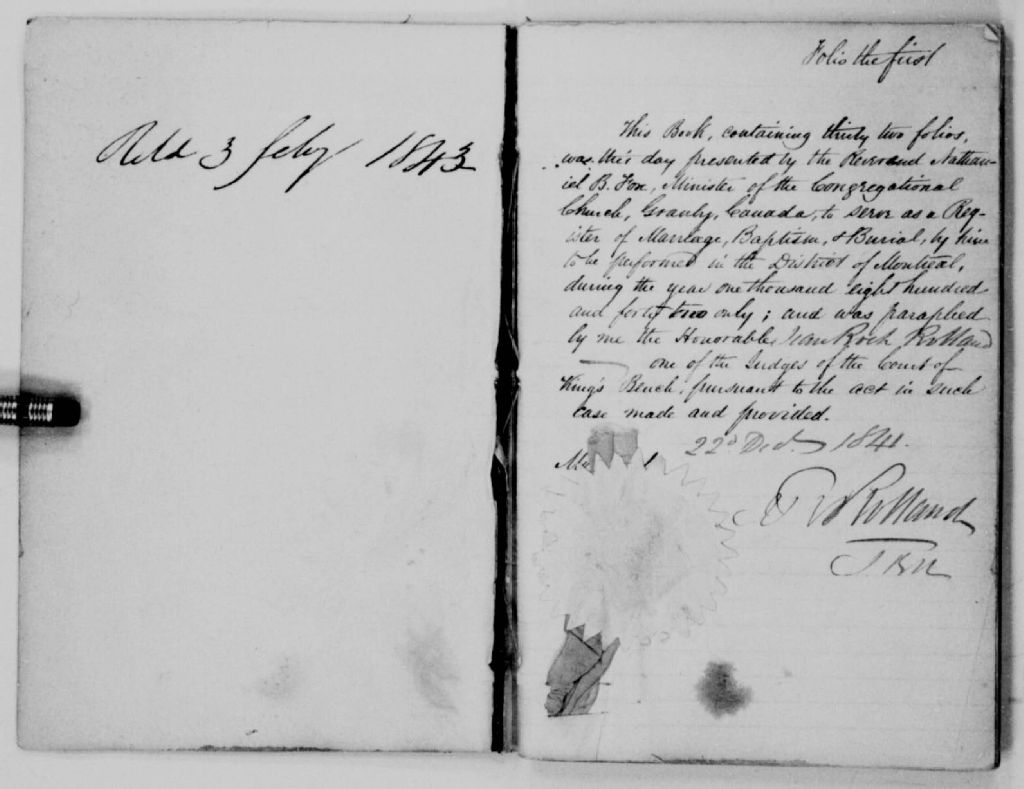 Retd 3 Feby 1843
Folio the first
This Book, containing thirty two folios,
was this day presented by the Reverend Nathan-
iel B. Fox, Minister of the Congregational
Church, Granby, Canada, to serve as a Reg-
ister of Marriage, Baptism, & Burial, by him
to be performed in the District of Montreal,
during the year one thousand eight hundred
and forty two only; and was paraphed
by me the Honorable Jean Roch Rolland
one of the Judges of the Court of
King's Bench, pursuant to the act in such
case made and provided.
22d Decr. 1841.
Rolland